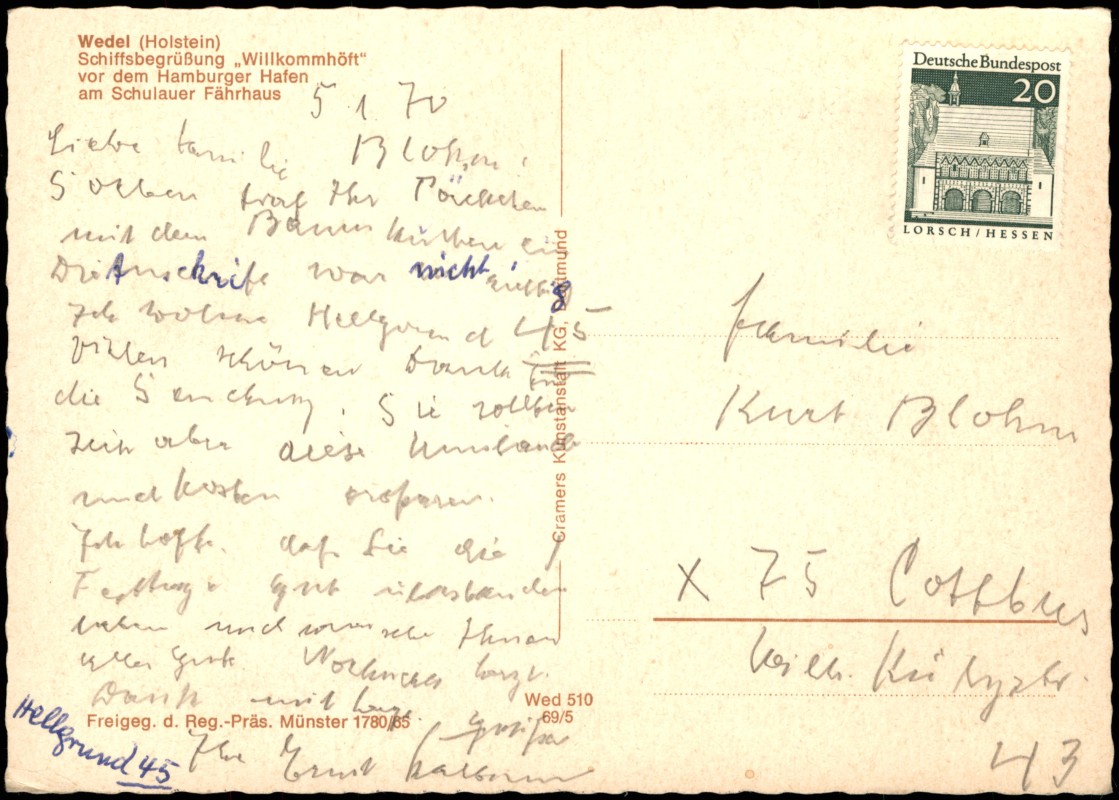 Wedel (Holstein)
Schiffsbegrüßung „Willkommhöft"
vor dem Hamburger Hafen
am Schulauer Fährhaus
5 1 70
Liebe Familie Blohm!
Soeben traf Ihr Päckchen
mit dem Baumkuchen ein
Die Anschrift war nicht richtig
Ich wohne Hellgrund 45
Vielen schönen Dank für
die Sendung. Sie sollten
sich aber diese Umstände
und Kosten ersparen.
Ich hoffe, daß Sie die
Festtage gut überstanden
haben und wünsche Ihnen
alles Gute. Nochmals herzl.
Dank mit Grüßen
Ihr Ernst
Freigeg. d. Reg.-Präs. Münster 1780/65
Hellgrund 45
Wed 510
69/5
Cramers Kunstanstalt KG, Dortmund
Deutsche Bundespost
20
LORSCH/HESSEN
Familie
Kurt Blohm
X 75 Cottbus
Wilh. Külzstr.
43